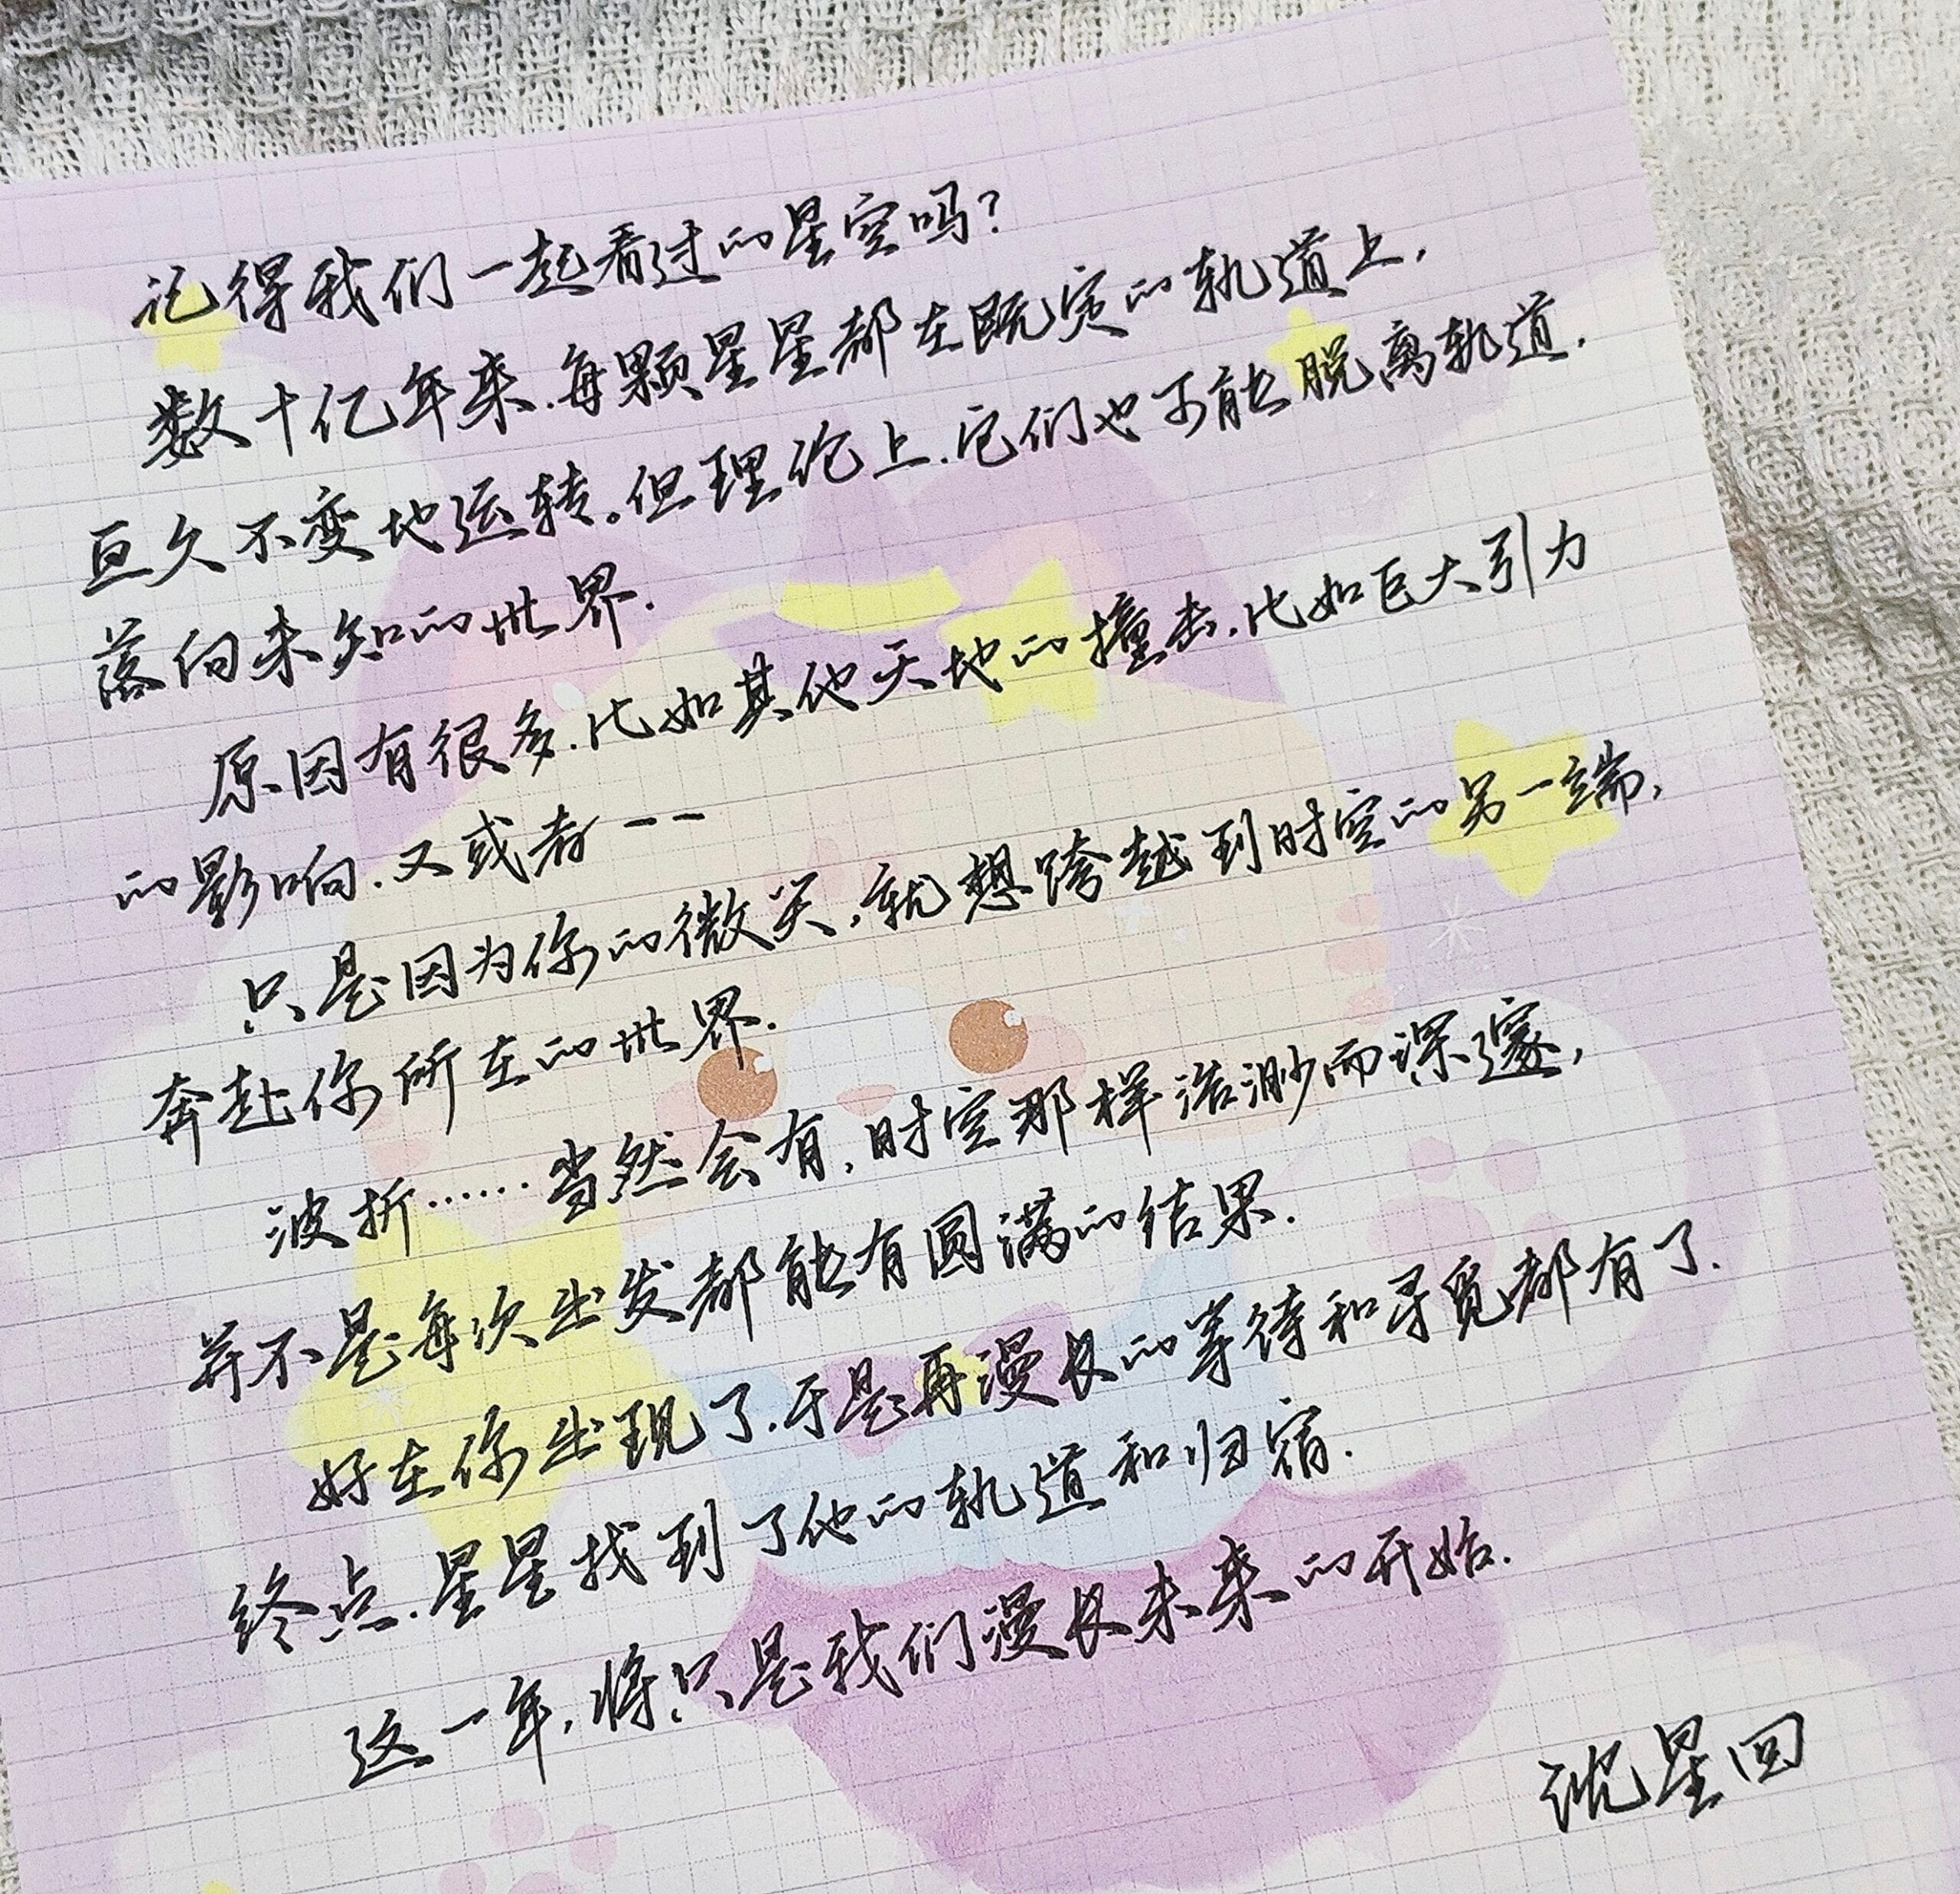 记得我们一起看过的星空吗?
数十亿年来.每颗星星都在既定的轨道上,
亘久不变地运转。但理论上.它们也可能脱离轨道.
落向未知的世界.
原因有很多.比如其他天地的撞击.比如巨大引力
的影响.又或者——
只是因为你的微笑,就想跨越到时空的另一端,
奔赴你所在的世界.
波折……当然会有,时空那样浩渺而深邃,
并不是每次出发都能有圆满的结果.
好在你出现了.于是再漫长的等待和寻觅都有了.
终点.星星找到了他的轨道和归宿.
这一年,将只是我们漫长未来的开始.
沈星回